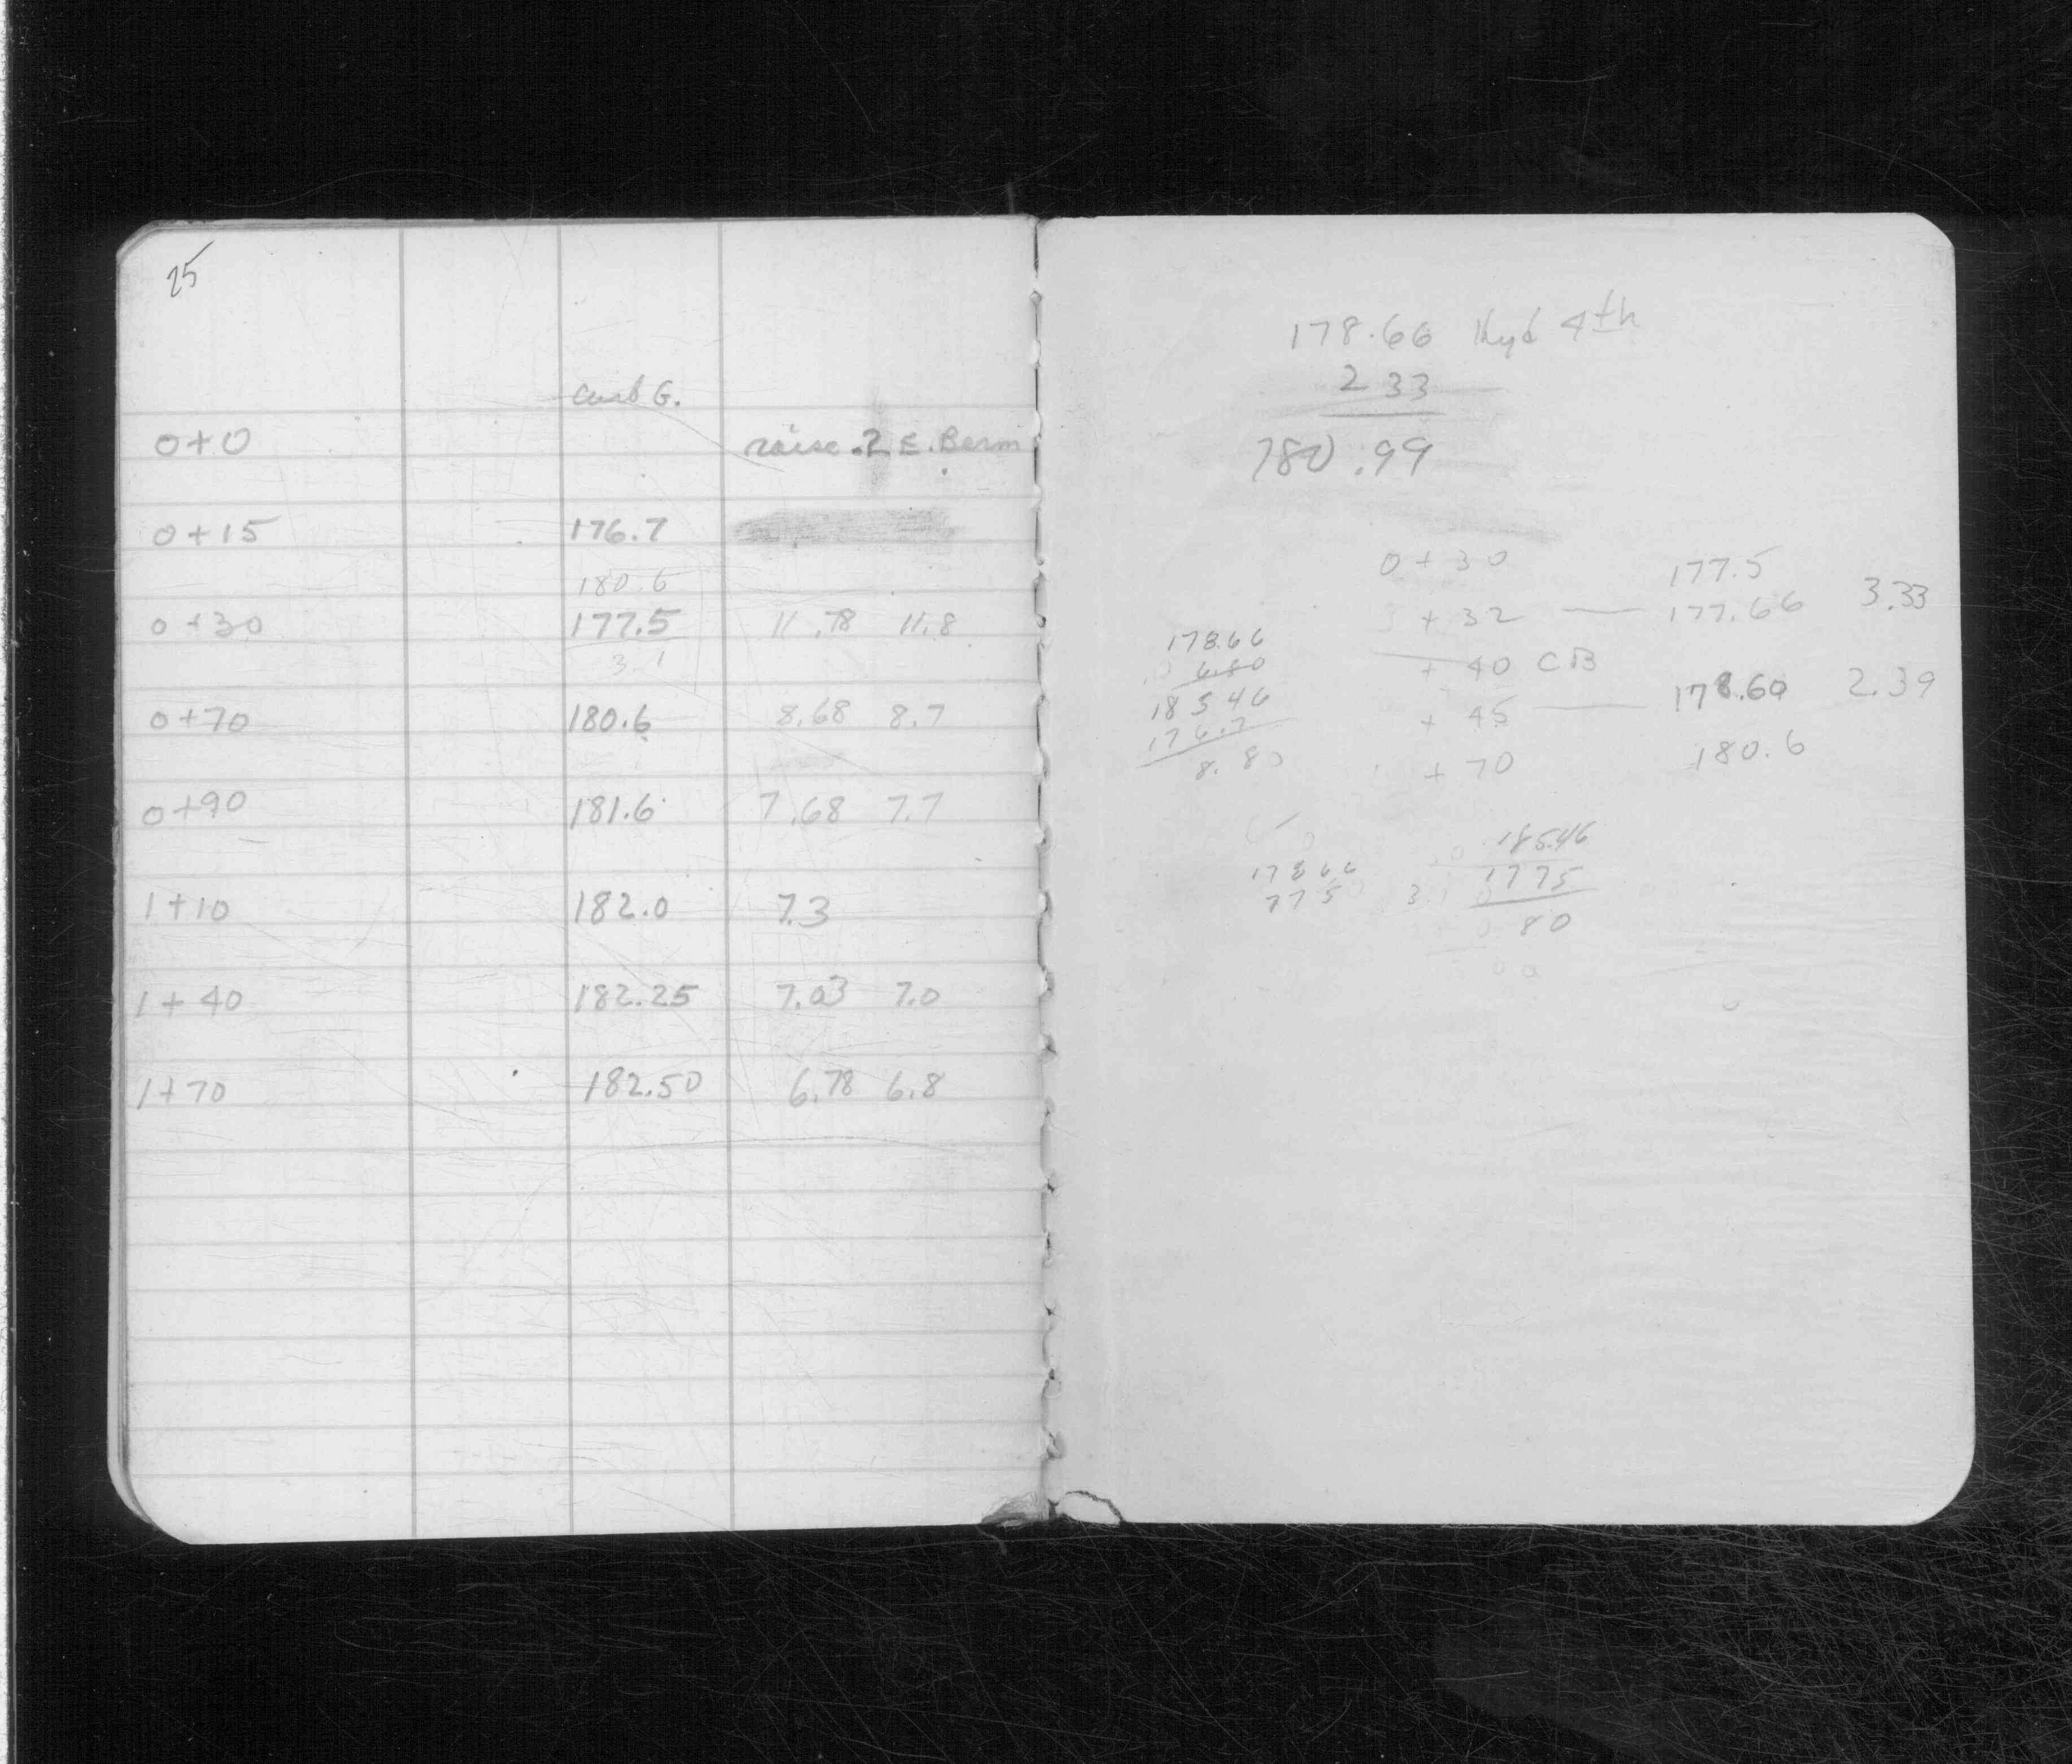 25
curb G.
0+0 raise .2 E. Berm
0+15 176.7
180.6
0+30 177.5 11.78 11.8
3.1
0+70 180.6 8.68 8.7
0+90 181.6 7.68 7.7
1+10 182.0 7.3
1+40 182.25 7.03 7.0
1+70 182.50 6.78 6.8
178.66 Hyd 4th
2 33
180.99
0+30 177.5
+ 32 — 177.66 3.33
+ 40 CB
+ 45 — 178.60 2.39
+ 70 180.6
178.66
6.80
185 46
176.7
8.80
178 66
77 5
185.46
177 5
80